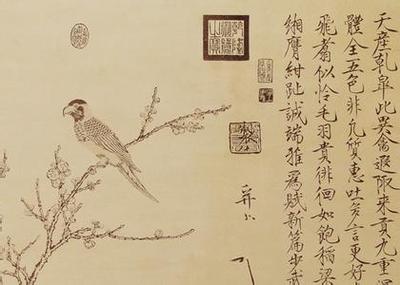 天產乾皋此異禽遐陬來貢九重
體全五色非凡質惠吐多言更好
飛翥似憐毛羽貴徘徊如飽稻粱
緗膺紺趾誠端雅爲賦新篇步武